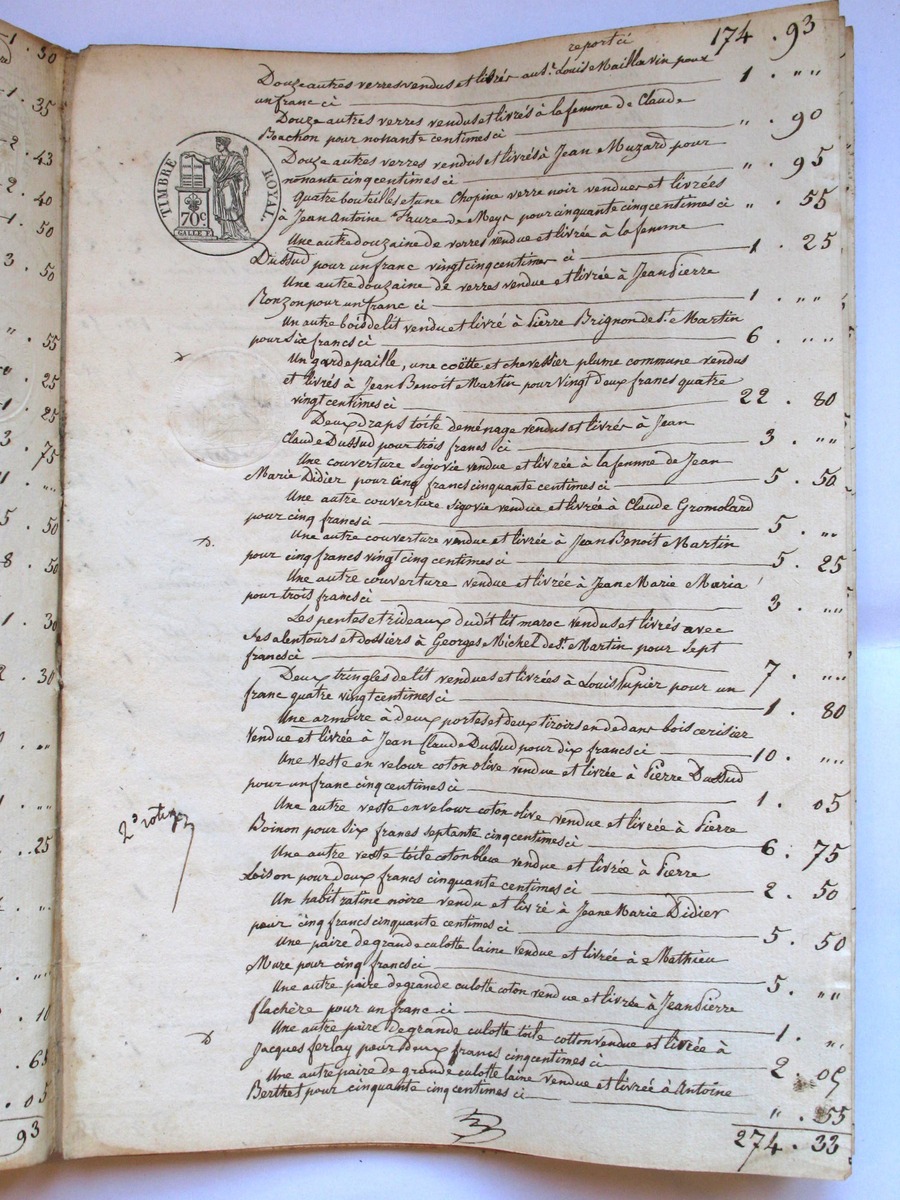 report ci 174 . 93
Douze autres verres vendus et livrés au Sr. Louis Maillavin pour
un franc ci 1 . "" 
Douze autres verres vendus et livrés à la femme de Claude
Bonchon pour nonante centimes ci " . 90
Douze autres verres vendus et livrés à Jean Muzard pour
nonante cinq centimes ci " . 95
Quatre bouteilles et une Chopine verre noir vendues et livrées
à Jean Antoine Faure de Meys pour cinquante cinq centimes ci " . 55
Une autre douzaine de verres vendue et livrée à la femme
Dussud pour un franc vingt cinq centimes ci 1 . 25
Une autre douzaine de verres vendue et livrée à Jean Pierre
Ronzon pour un franc ci 1 . ""
Un autre bois de lit vendu et livré à Pierre Brignon de St. Martin
pour Six francs ci 6 . ""
Un garde paille, une coëtte et chevessier plume commune vendus
et livrés à Jean Benoit Martin pour Vingt deux francs quatre
vingt centimes ci 22 . 80
Deux draps toile de ménage vendus et livrés à Jean
Claude Dussud pour trois francs ci 3 . ""
Une couverture Sigovie vendue et livrée à la femme de Jean
Marie Didier pour Cinq francs cinquante centimes ci 5 . 50
Une autre couverture Sigovie vendue et livrée à Claude Gromolard
pour cinq francs ci 5 . ""
Une autre couverture vendue et livrée à Jean Benoit Martin
pour cinq francs vingt cinq centimes ci 5 . 25
Une autre couverture vendue et livrée à Jean Marie Maria
pour trois francs ci 3 . ""
Les pentes et rideaux dudit lit maroc vendus et livrés avec
ses alentours et dossiers à Georges Michel de St. Martin pour Sept
francs ci 7 . ""
Deux tringles de lit vendues et livrées à Louis Pupier pour un
franc quatre vingt centimes ci 1 . 80
Une armoire à deux portes et deux tiroirs en dedans bois cerisier
vendue et livrée à Jean Claude Dussud pour dix francs ci 10 . ""
Une veste en velour coton olive vendue et livrée à Pierre Dussud
pour un franc cinq centimes ci 1 . 05
Une autre veste en velour coton olive vendue et livrée à Pierre
Boinon pour Six francs septante cinq centimes ci 6 . 75
Une autre veste toile coton bleue vendue et livrée à Pierre
Loison pour deux francs cinquante centimes ci 2 . 50
Un habit ratine noire vendu et livré à Jean Marie Didier
pour cinq francs cinquante centimes ci 5 . 50
Une paire de grande culotte laine vendue et livrée à Mathieu
Mure pour cinq francs ci 5 . ""
Une autre paire de grande culotte coton vendue et livrée à Jean Pierre
flachère pour un franc ci 1 . ""
Une autre paire de grande culotte toile cotton vendue et livrée à
Jacques ferlay pour Deux francs cinq centimes ci 2 . 05
Une autre paire de grande culotte laine vendue et livrée à Antoine
Berthet pour cinquante cinq centimes ci " . 55
274 . 33
TIMBRE ROYAL.
70c.